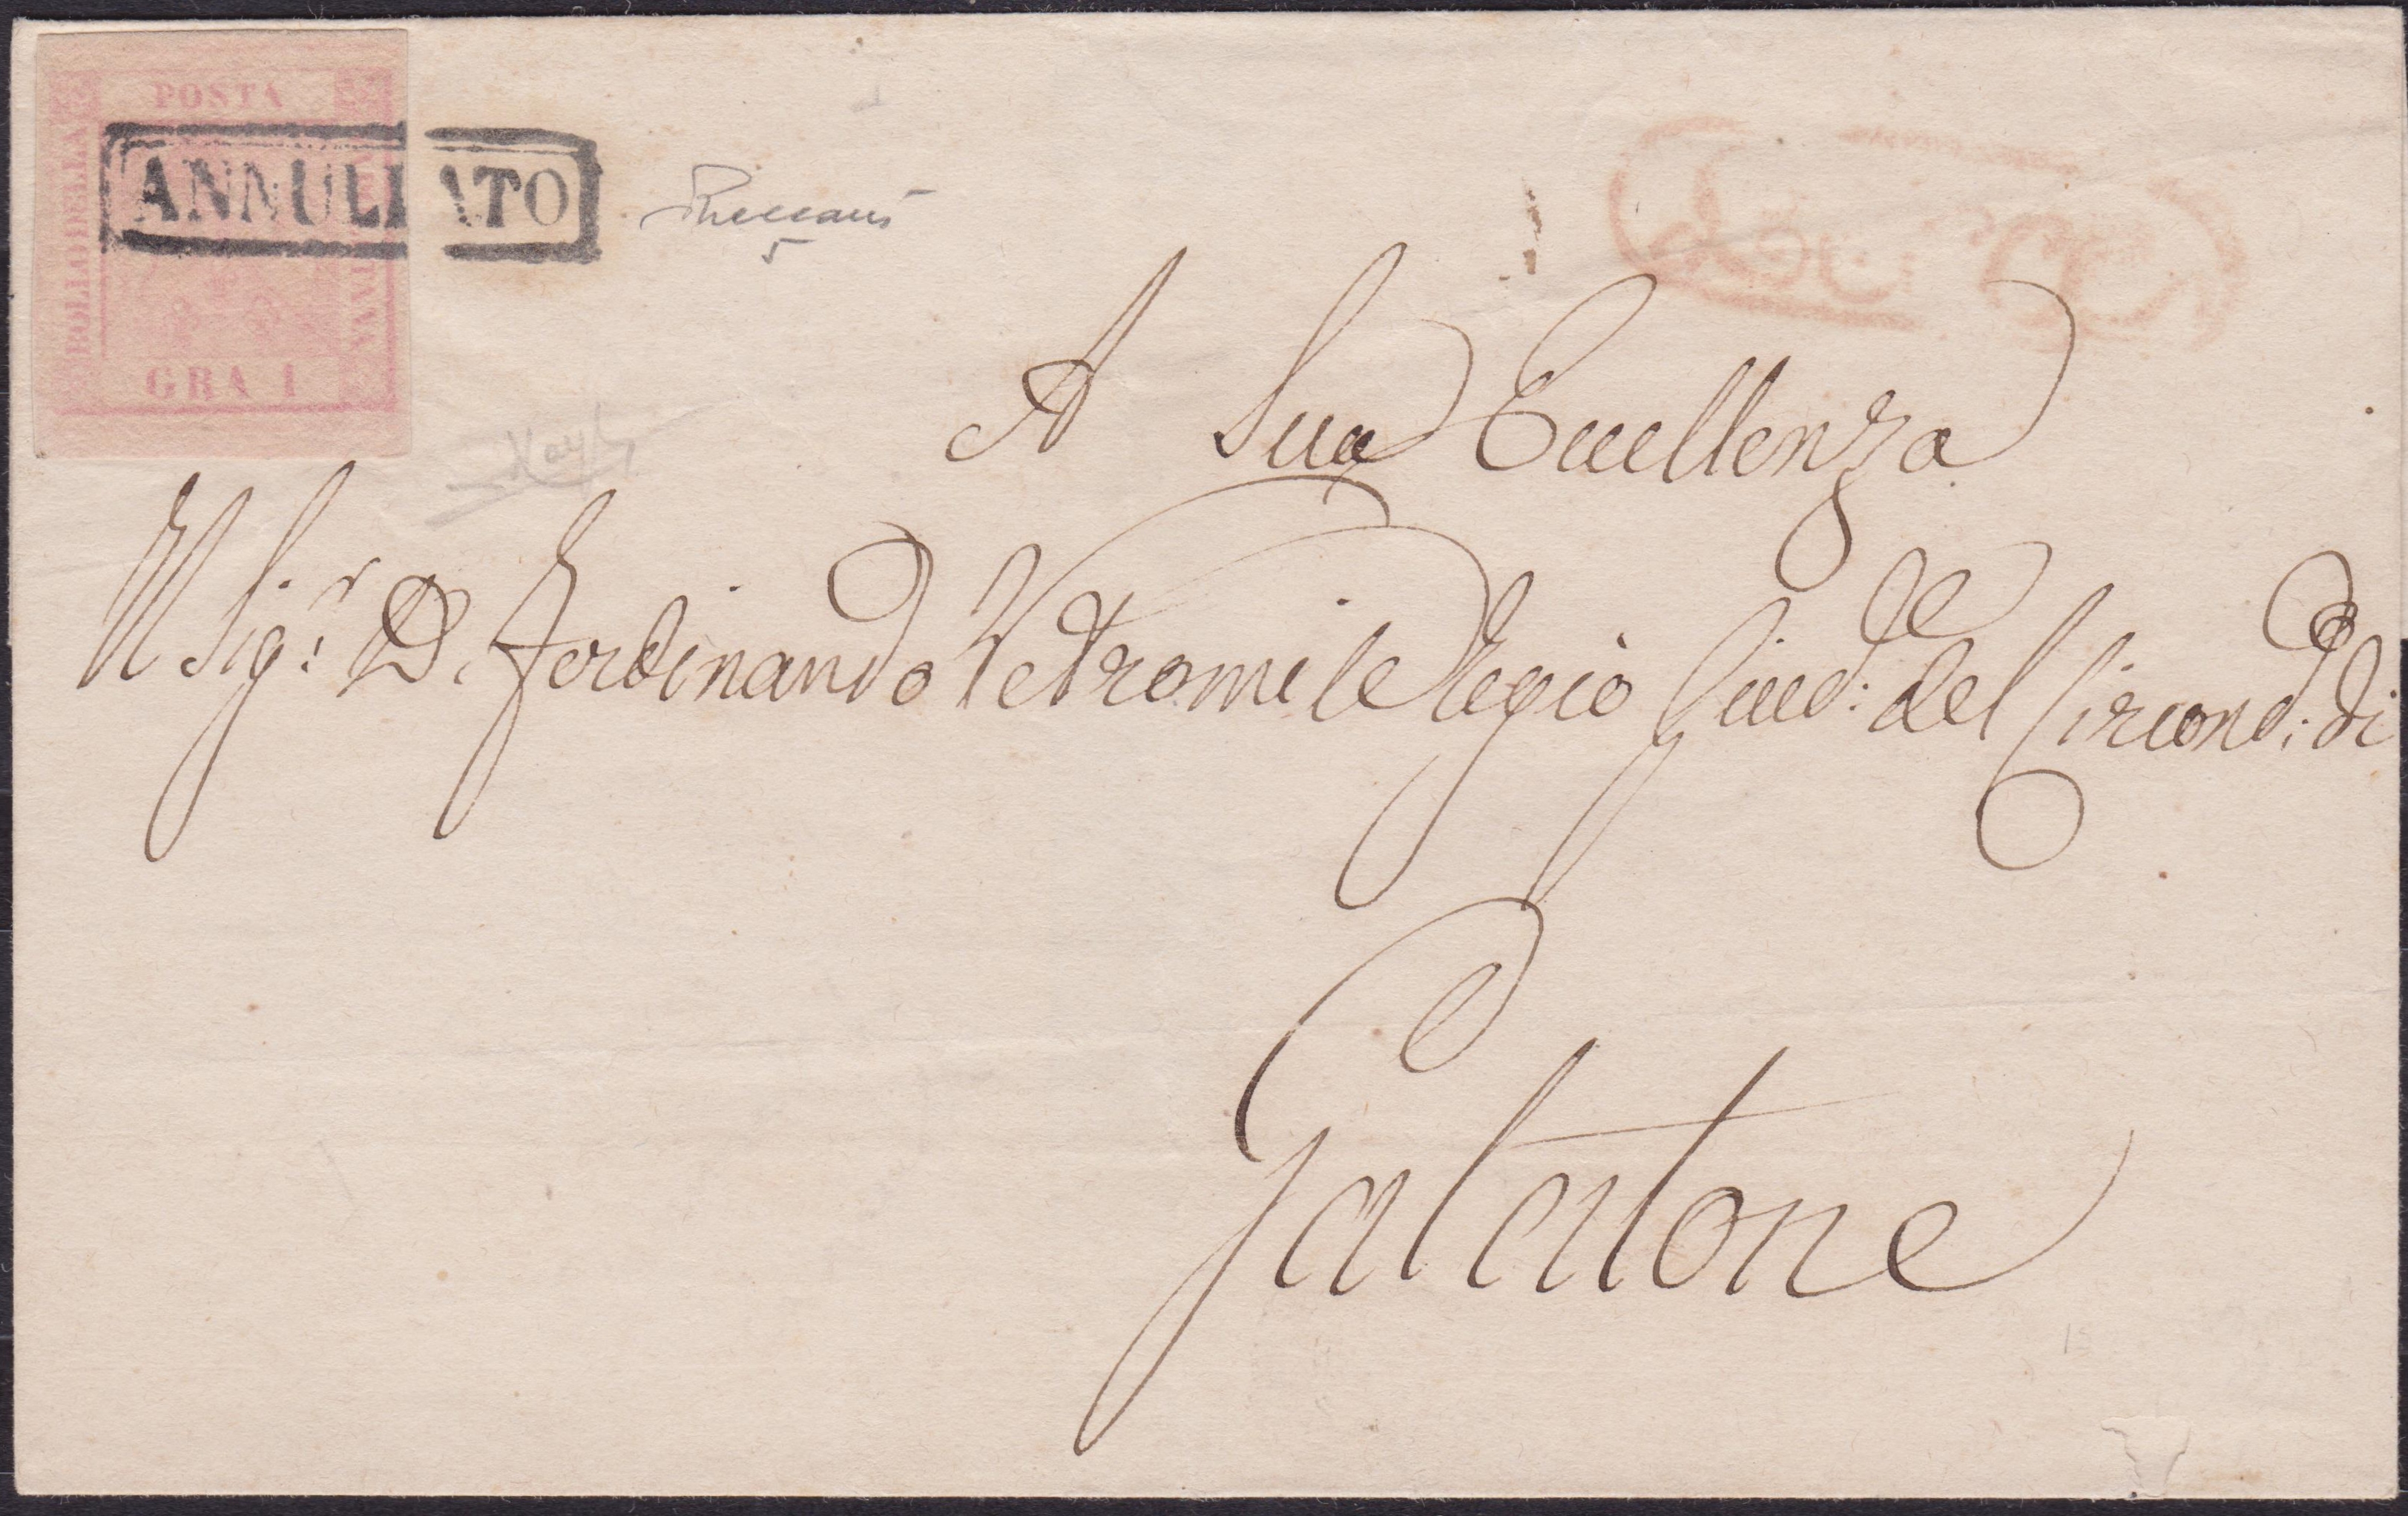 POSTA
BOLLO DELLA
GRA 1
ANNULLATO
A Sua Eccellenza
Il Sig.r D. Ferdinando Vetromile Regio Giud:ce del Circond:o di
Galatone